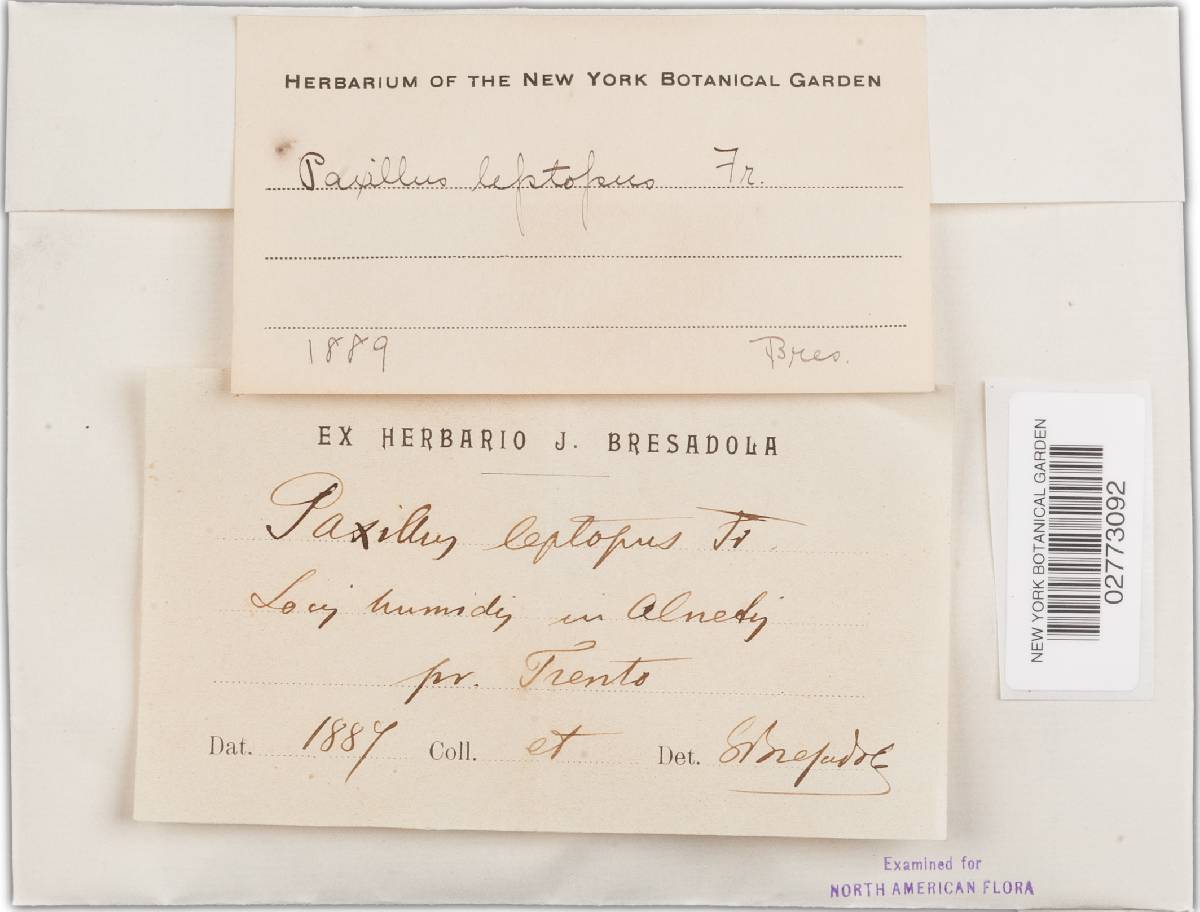 HERBARIUM OF THE NEW YORK BOTANICAL GARDEN
Paxillus leptopus Fr.
1889
Bres.
EX HERBARIO J. BRESADOLA
Paxillus leptopus Fr
Locis humidis in Alnetis
pr. Trento
Dat. 1889 Coll. et Det. Bresadola
NEW YORK BOTANICAL GARDEN
02773092
Examined for
NORTH AMERICAN FLORA